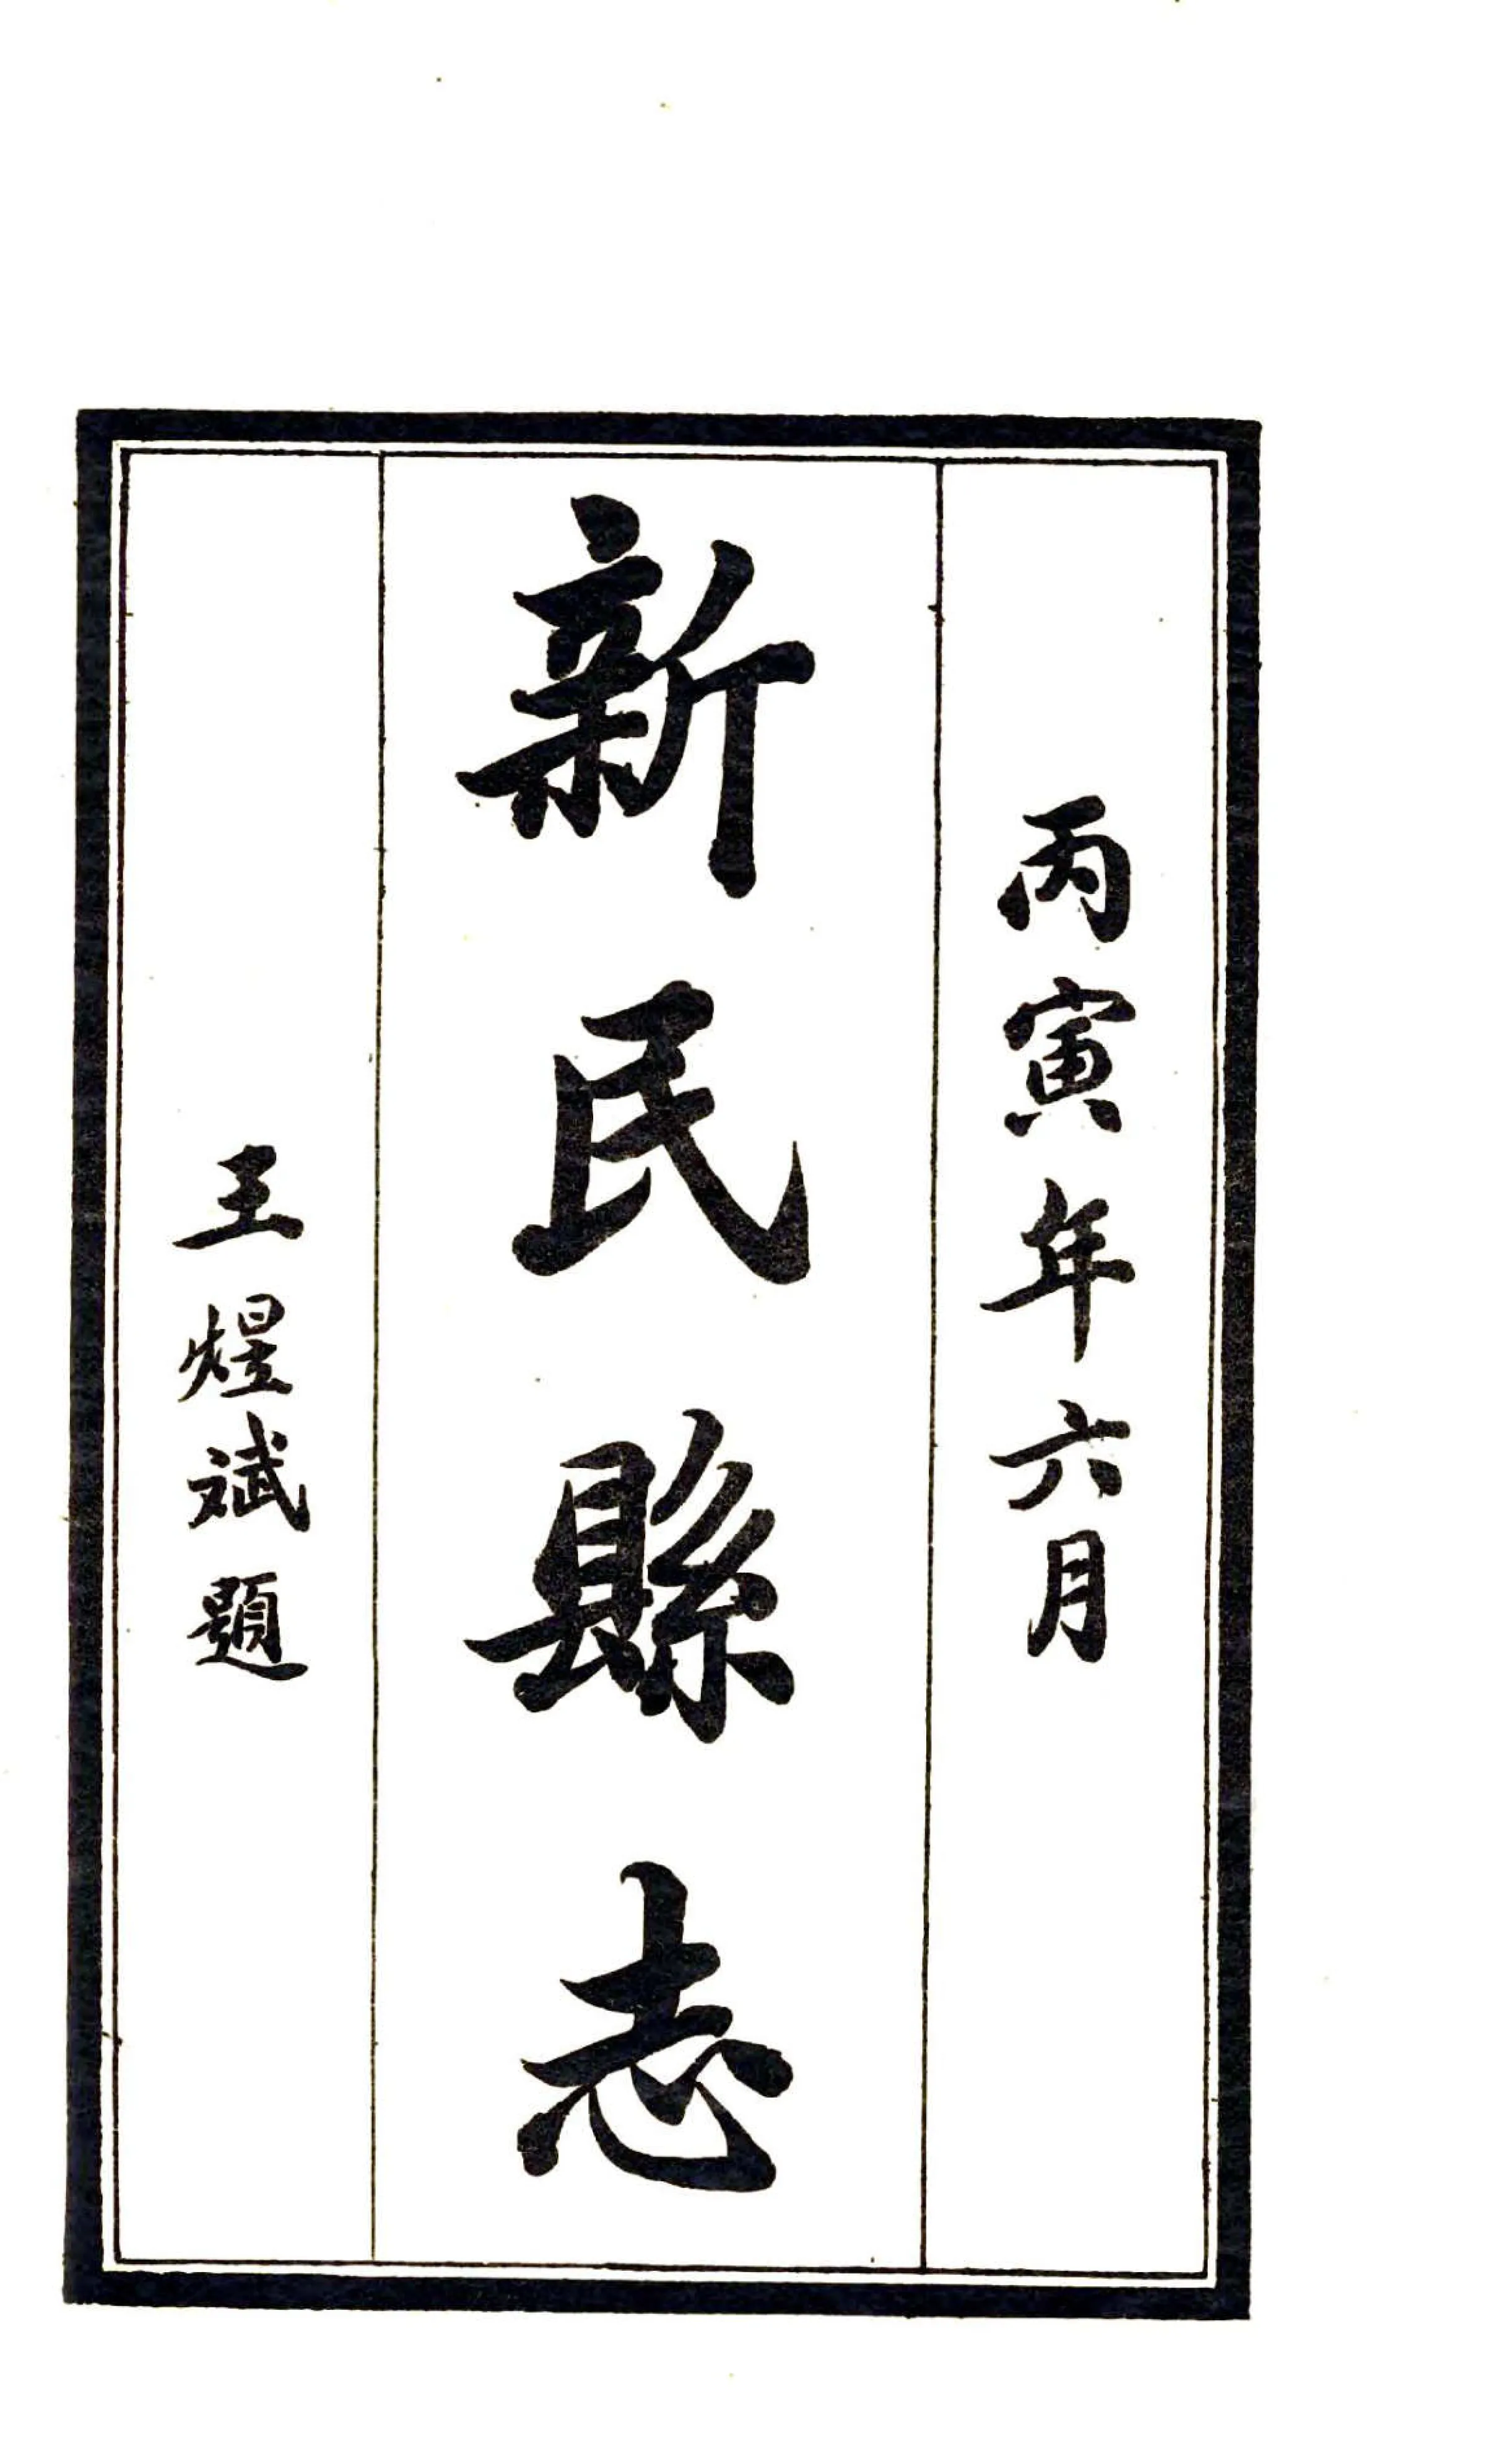 丙寅年六月
新民縣志
王煜斌題